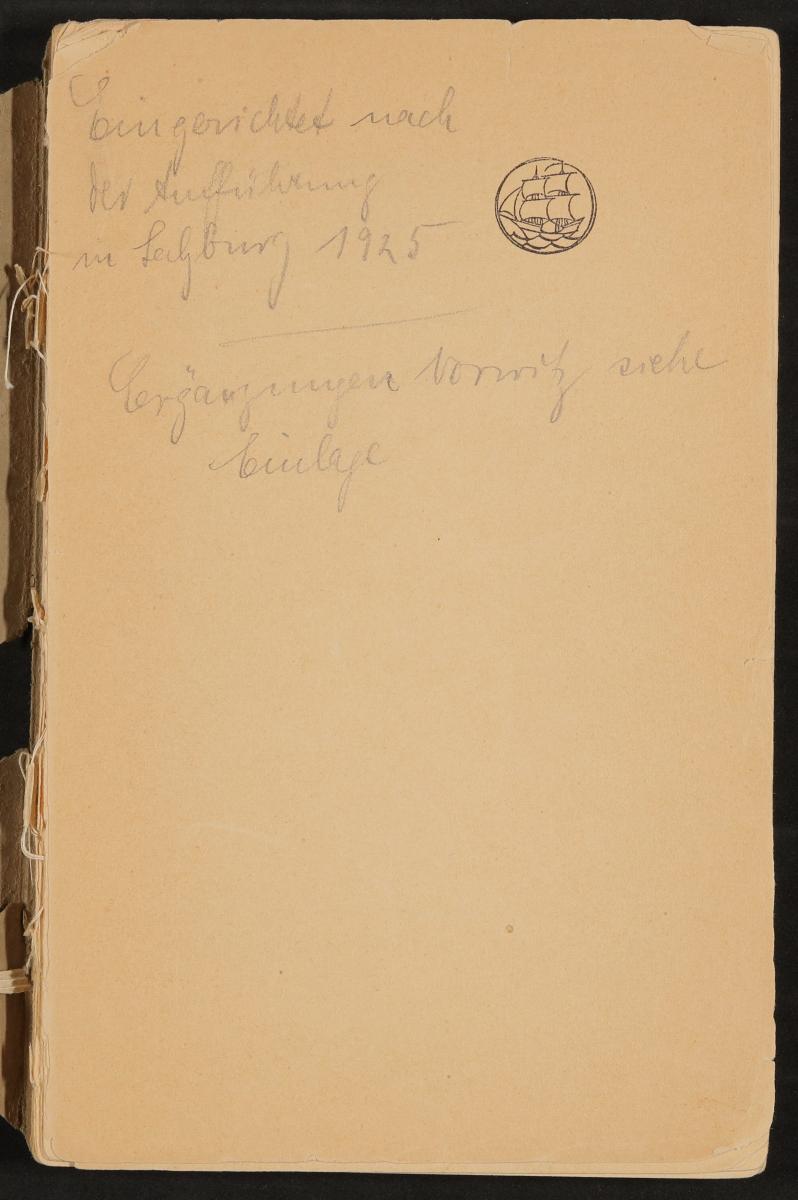 Eingerichtet nach
der Aufführung
in Salzburg 1925
Ergänzungen Vorwitz siehe
Einlage